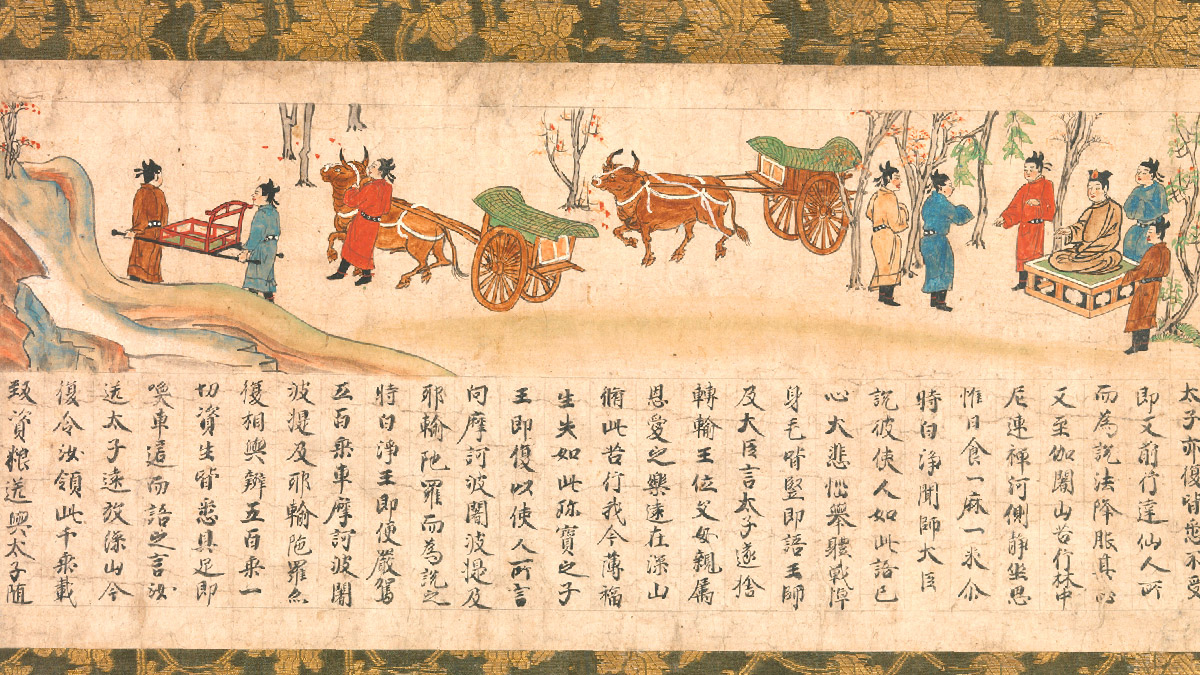 太子亦復皆悉不受
即又前行達仙人所
而為說法降其心
又至伽闍山苦行林中
尼連禪河側静坐思
惟日食一麻一米尒
時白淨聞師大臣
說彼使人如此語已
心大悲惱舉體戰悼
身毛皆竪即語王師
及大臣言太子遂捨
轉輪王位父母親屬
恩愛之樂遠在深山
脩此苦行我今薄福
生失如此珎寶之子
王即復以使人所言
向摩訶波闍波提及
耶輸陁羅而為說之
時白淨王即便嚴駕
五百乘車摩訶波闍
波提及耶輸陁羅亦
復相與辨五百乘一
切資生皆悉具足即
喚車匿而語之言汝
送太子遠放深山今
復令汝領此千乘載
致資粮送與太子随